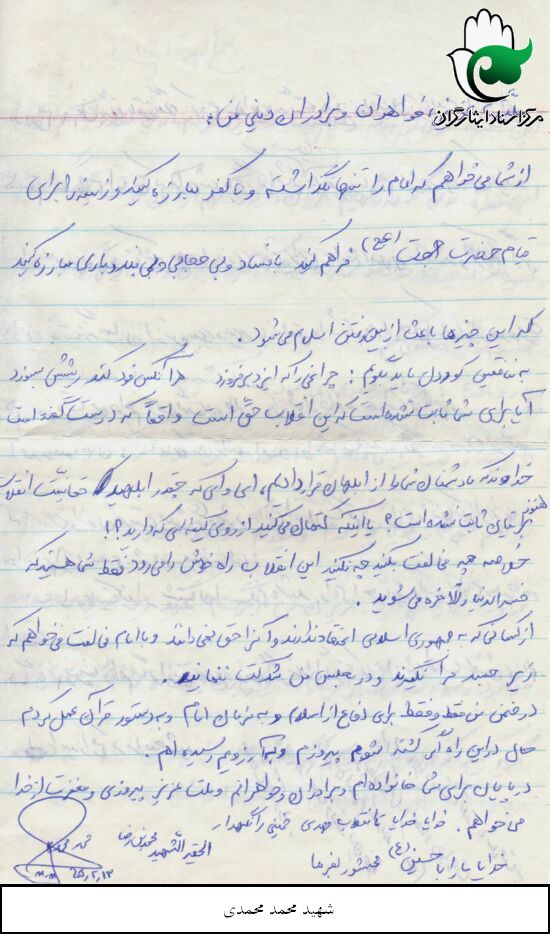 مرکز اسناد ایثارگران
خواهران و برادران دینی من:
از شما می‌خواهم که امام را تنها نگذاشته و با کفر مبارزه کنید و زمینه را برای
قیام حضرت حجت (عج) فراهم کنید با فساد و بی حجابی و بی بندوباری مبارزه کنید
که این چیزها باعث از بین رفتن اسلام می‌شود.
به منافقین کوردل باید بگویم: چراغی را که ایزد برفروزد هر آنکس فوت کند ریشش بسوزد
آیا برای شما ثابت نشده است که این انقلاب حق است واقعاً که درست گفته است
خداوند که ما دشمنان شما را از ابلهان قرار دادیم، ای وای که چقدر ابلهید که حقانیت انقلاب
هنوز برایتان ثابت نشده است؟ یا اینکه کتمان می‌کنید از روی کینه‌ای که دارید؟!
خلاصه چه مخالفت بکنید چه نکنید این انقلاب راه خودش را می‌رود فقط شما هستید که
خسر الدنیا والآخره می‌شوید.
از کسانی که به جمهوری اسلامی اعتقاد ندارند و آنرا حق نمی‌دانند و با امام مخالفت می‌خواهم که
زیر جسد مرا نگیرند و در مجلس من شرکت ننمایند.
در ضمن من فقط و فقط برای دفاع از اسلام و به فرمان امام و به دستور قرآن عمل کردم
حال در این راه اگر کشته شوم پیروزم و به آرزویم رسیده‌ام.
در پایان برای شما خانواده‌ام و برادران و خواهرانم و ملت عزیز پیروزی و مغفرت از خدا
می‌خواهم. خدایا خدایا تا انقلاب مهدی خمینی را نگهدار
خدایا ما را با حسین (ع) محشور بفرما
الحقیر الشهید محمد بن رضا
محمد محمدی
m.m ۶۵,۲,۱۳
شهید محمد محمدی